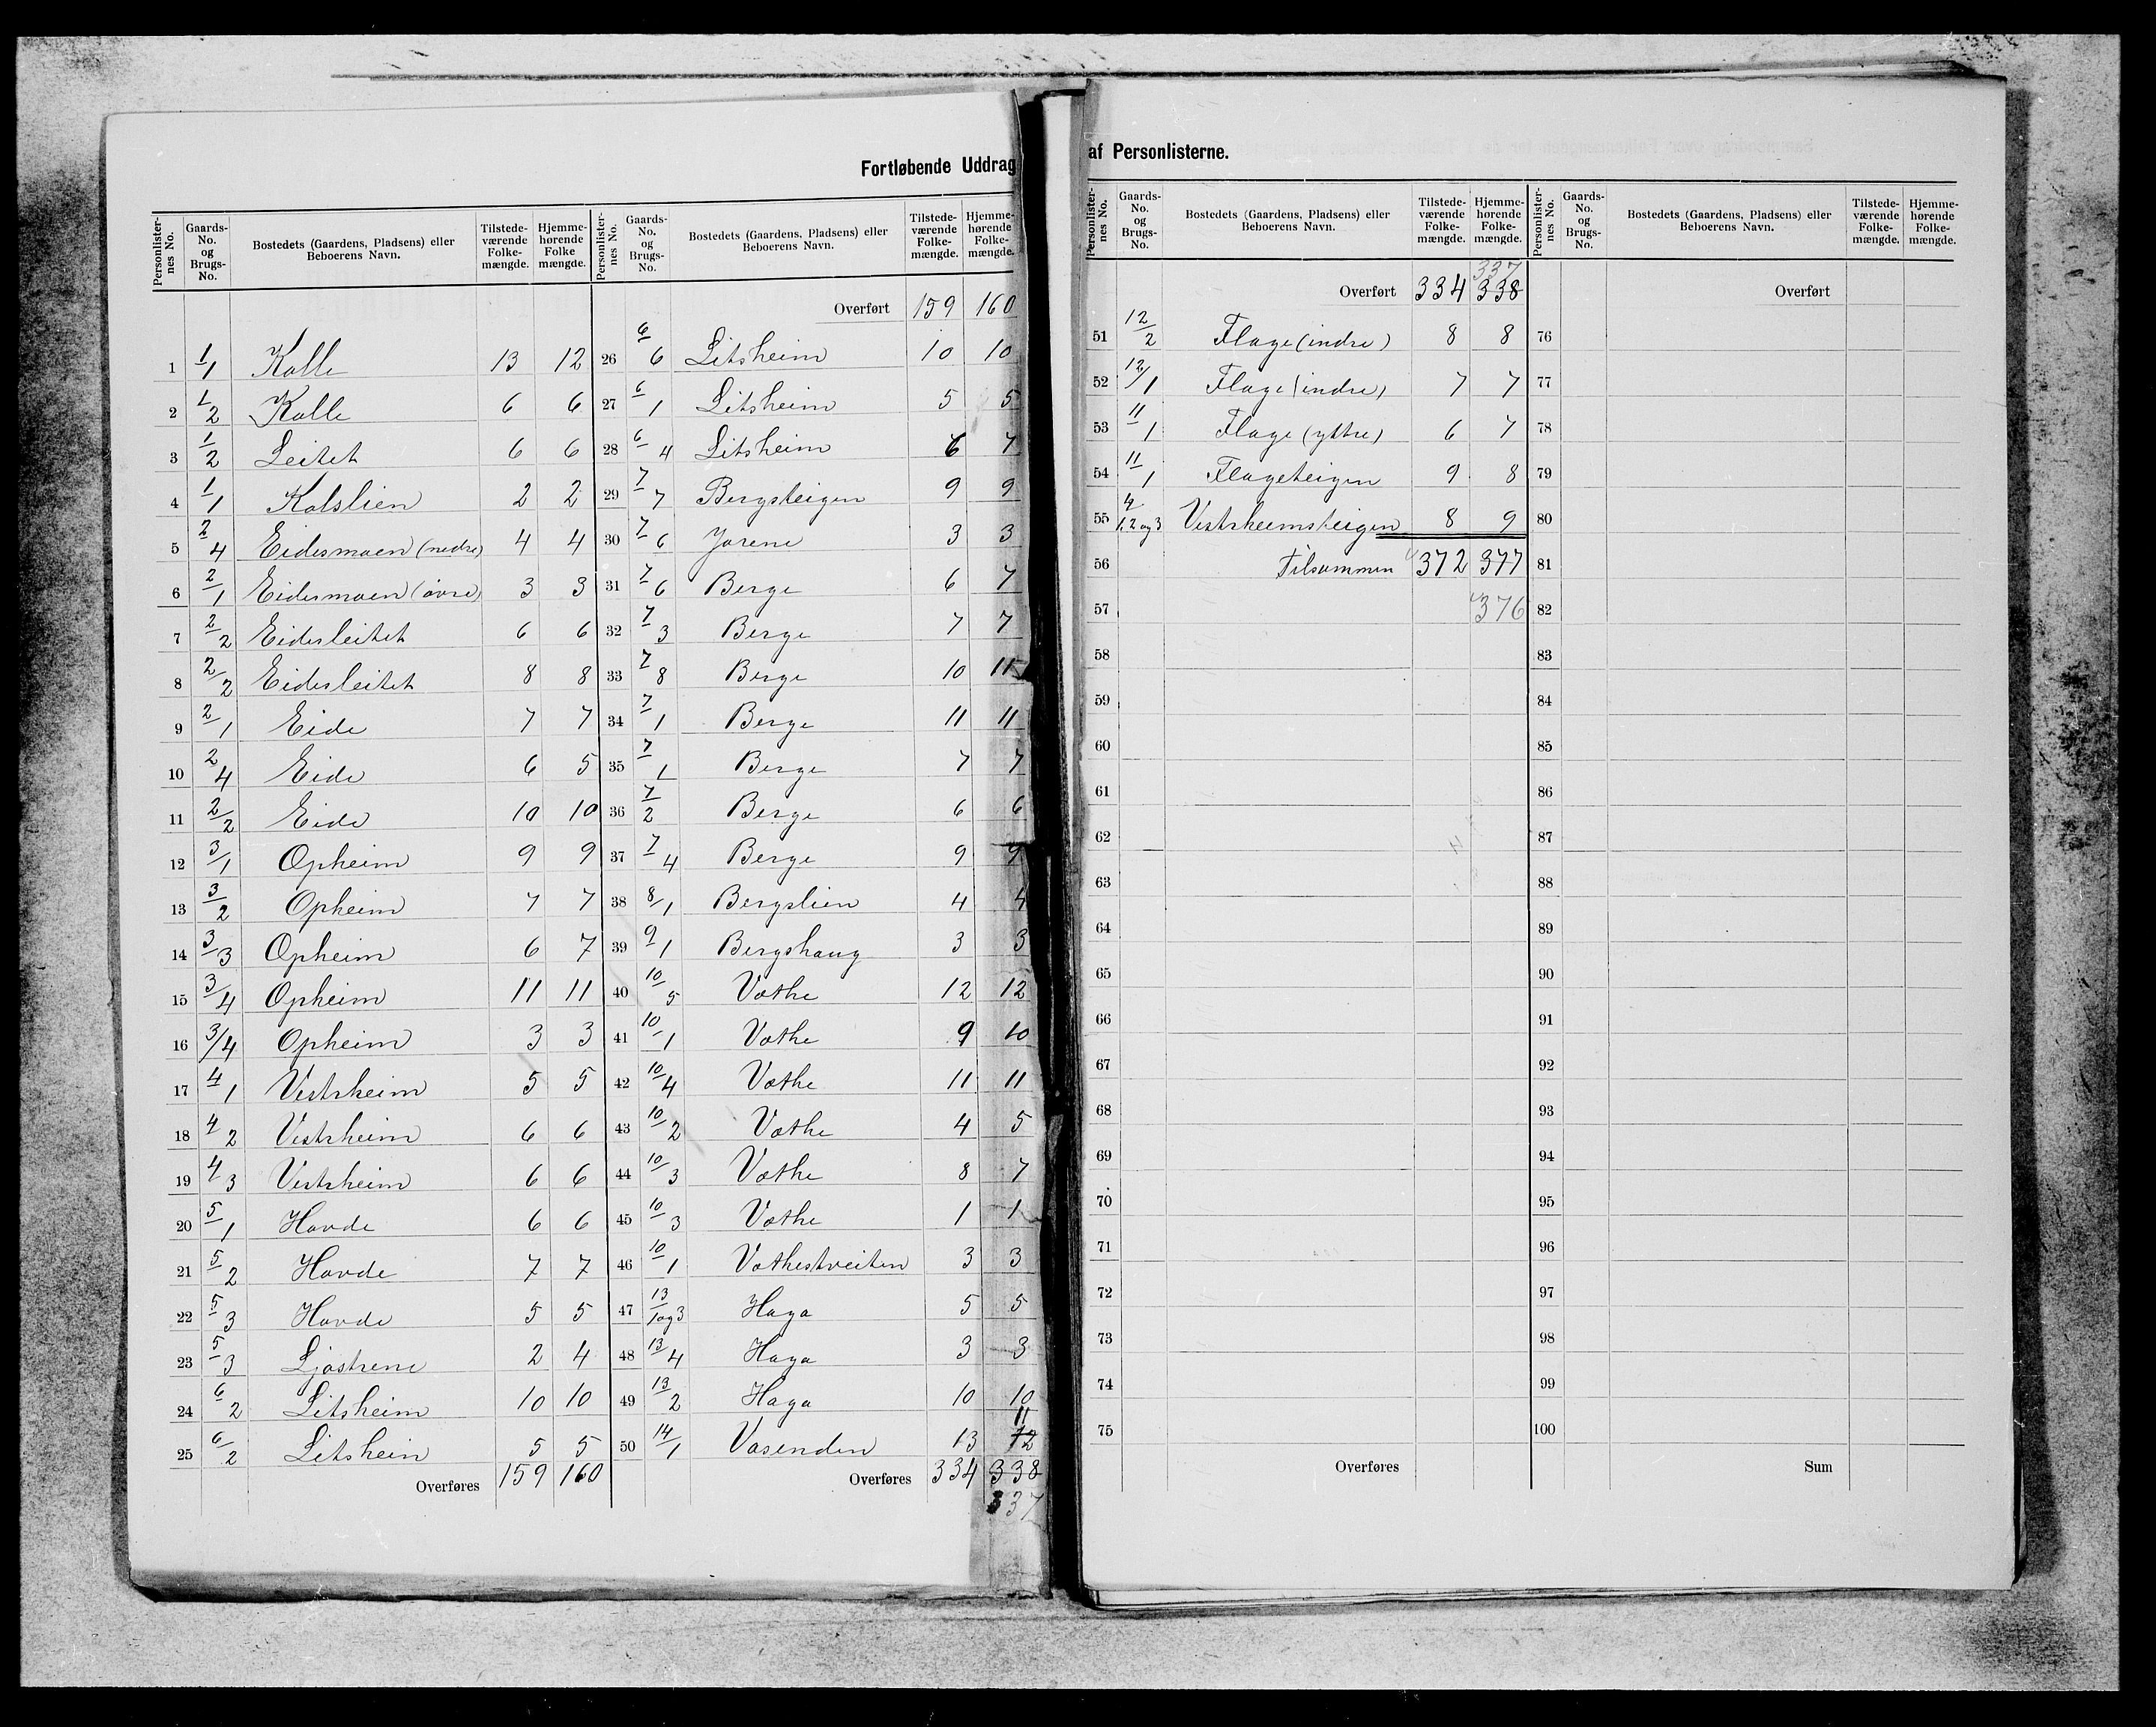 Fortløbende Uddrag af Personlisterne.
Personlisternes No. Gaards-No. og Brugs-No. Bostedets (Gaardens, Pladsens) eller Beboerens Navn. Tilstedeværende Folkemængde. Hjemmehørende Folkemængde.
1 1/1 Kolle 13 12
2 1/2 Kolle 6 6
3 1/2 Leitet 6 6
4 1/1 Kolslien 2 2
5 2/4 Eidesmoen (nedre) 4 4
6 2/1 Eidesmoen (øvre) 3 3
7 2/2 Eidesleitet 6 6
8 2/2 Eidesleitet 8 8
9 2/1 Eide 7 7
10 2/4 Eide 6 5
11 2/2 Eide 10 10
12 3/1 Opheim 9 9
13 3/2 Opheim 7 7
14 3/3 Opheim 6 7
15 3/4 Opheim 11 11
16 3/4 Opheim 3 3
17 4/1 Vestrheim 5 5
18 4/2 Vestrheim 6 6
19 4/3 Vestrheim 6 6
20 5/1 Hovde 6 6
21 5/2 Hovde 7 7
22 5/3 Hovde 5 5
23 5/3 Ljostrene 2 4
24 6/2 Litsheim 10 10
25 6/2 Litsheim 5 5
Overføres 159 160
Personlisternes No. Gaards-No. og Brugs-No. Bostedets (Gaardens, Pladsens) eller Beboerens Navn. Tilstedeværende Folkemængde. Hjemmehørende Folkemængde.
Overført 159 160
26 6/6 Litsheim 10 10
27 6/1 Litsheim 5 5
28 6/4 Litsheim 6 7
29 7/7 Bergsteigen 9 9
30 7/6 Jorene 3 3
31 7/6 Berge 6 7
32 7/3 Berge 7 7
33 7/8 Berge 10 11
34 7/1 Berge 11 11
35 7/1 Berge 7 7
36 7/2 Berge 6 6
37 7/4 Berge 9 9
38 8/1 Bergslien 4 4
39 9/1 Bergshaug 3 3
40 10/5 Vothe 12 12
41 10/1 Vothe 9 10
42 10/4 Vothe 11 11
43 10/2 Vothe 4 5
44 10/3 Vothe 8 7
45 10/3 Vothe 1 1
46 10/1 Vothestveiten 3 3
47 13/1 og 3 Haga 5 5
48 13/4 Haga 3 3
49 13/2 Haga 10 10
11
50 14/1 Vasenden 13 12
Overføres 334 338
337
Personlisternes No. Gaards-No. og Brugs-No. Bostedets (Gaardens, Pladsens) eller Beboerens Navn. Tilstedeværende Folkemængde. Hjemmehørende Folkemængde.
337
Overført 334 338
51 12/2 Flage (indre) 8 8
52 12/1 Flage (indre) 7 7
53 11/1 Flage (yttre) 6 7
54 11/1 Flageteigen 9 8
55 4/1, 2 og 3 Vestrheimsteigen 8 9
56 Tilsammen 372 377
57 376
58
59
60
61
62
63
64
65
66
67
68
69
70
71
72
73
74
75
Overføres
Personlisternes No. Gaards-No. og Brugs-No. Bostedets (Gaardens, Pladsens) eller Beboerens Navn. Tilstedeværende Folkemængde. Hjemmehørende Folkemængde.
Overført
76
77
78
79
80
81
82
83
84
85
86
87
88
89
90
91
92
93
94
95
96
97
98
99
100
Sum